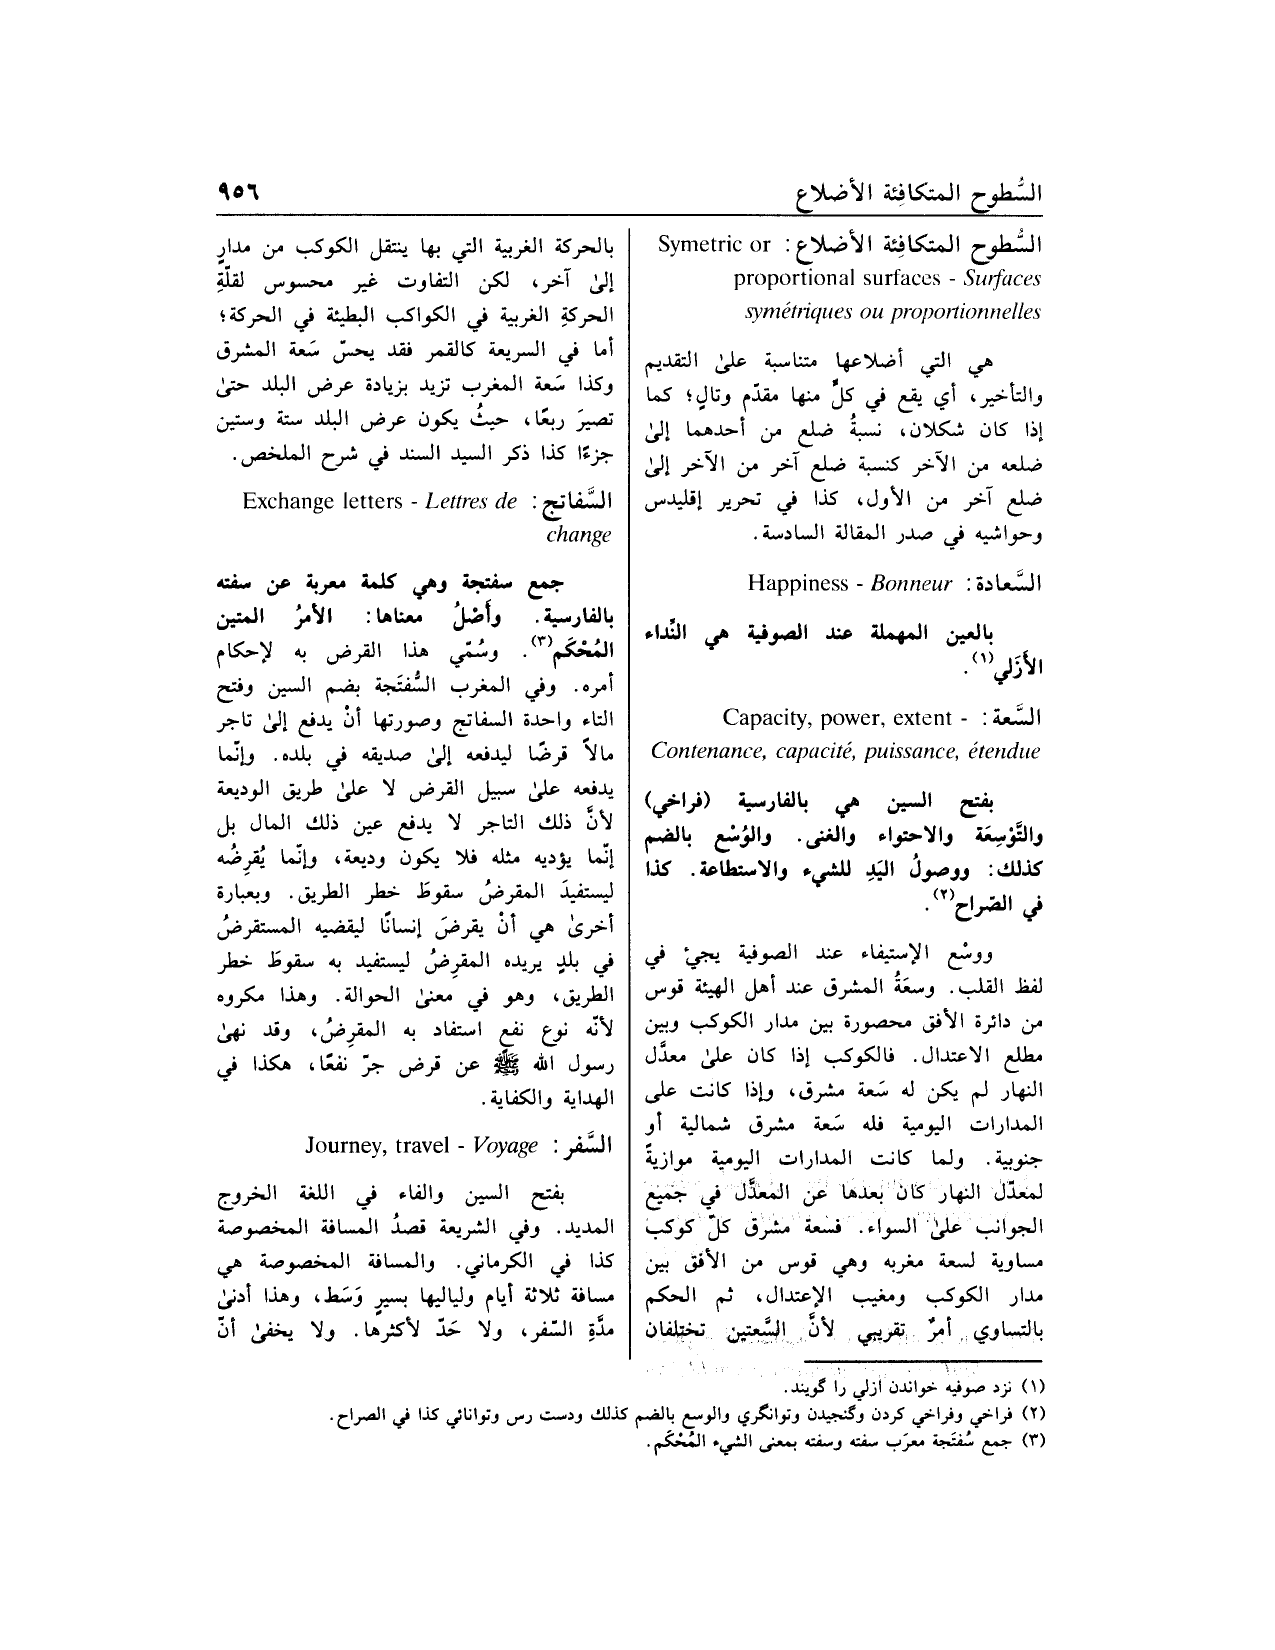 السُّطوح المتكافِئة الأضلاع
٩٥٦
السُّطوح المتكافِئة الأضلاع: Symetric or
proportional surfaces - Surfaces
symétriques ou proportionnelles
هي التي أضلاعها متناسبة علىٰ التقديم
والتأخير، أي يقع في كلٍّ منها مقدّم وتالٍ؛ كما
إذا كان شكلان، نسبةُ ضلع من أحدهما إلىٰ
ضلعه من الآخر كنسبة ضلع آخر من الآخر إلىٰ
ضلع آخر من الأول، كذا في تحرير إقليدس
وحواشيه في صدر المقالة السادسة.
السَّعادة: Happiness - Bonneur
بالعين المهملة عند الصوفية هي النِّداء
الأَزَلي(١).
السَّعة: Capacity, power, extent -
Contenance, capacité, puissance, étendue
بفتح السين هي بالفارسية (فراخي)
والتَّوْسِعَة والاحتواء والغنى. والوُسْع بالضم
كذلك: ووصولُ اليَدِ للشيء والاستطاعة. كذا
في الصّراح(٢).
ووسْع الإستيفاء عند الصوفية يجيئ في
لفظ القلب. وسعَةُ المشرق عند أهل الهيئة قوس
من دائرة الأفق محصورة بين مدار الكوكب وبين
مطلع الاعتدال. فالكوكب إذا كان علىٰ معدَّل
النهار لم يكن له سَعة مشرق، وإذا كانت على
المدارات اليومية فله سَعة مشرق شمالية أو
جنوبية. ولما كانت المدارات اليومية موازيةً
لمعدّل النهار كان بعدها عن المعدَّل في جميع
الجوانب علىٰ السواء. فسعة مشرق كلّ كوكب
مساوية لسعة مغربه وهي قوس من الأفق بين
مدار الكوكب ومغيب الإعتدال، ثم الحكم
بالتساوي أمرٌ تقريبي لأنَّ السَّعتين تختلفان
بالحركة الغربية التي بها ينتقل الكوكب من مدارٍ
إلىٰ آخر، لكن التفاوت غير محسوس لقلّةِ
الحركةِ الغربية في الكواكب البطيئة في الحركة؛
أما في السريعة كالقمر فقد يحسّ سَعة المشرق
وكذا سَعة المغرب تزيد بزيادة عرض البلد حتىٰ
تصيرَ ربعًا، حيثُ يكون عرض البلد ستة وستين
جزءًا كذا ذكر السيد السند في شرح الملخص.
السَّفاتج: Exchange letters - Lettres de
change
جمع سفتجة وهي كلمة معربة عن سفته
بالفارسية. وأَصْلُ معناها: الأمرُ المتين
المُحْكَم(٣). وسُمّي هذا القرض به لإحكام
أمره. وفي المغرب السُّفتَجة بضم السين وفتح
التاء واحدة السفاتج وصورتها أنْ يدفع إلىٰ تاجر
مالاً قرضًا ليدفعه إلىٰ صديقه في بلده. وإنّما
يدفعه علىٰ سبيل القرض لا علىٰ طريق الوديعة
لأنَّ ذلك التاجر لا يدفع عين ذلك المال بل
إنّما يؤديه مثله فلا يكون وديعة، وإنّما يُقرِضُه
ليستفيدَ المقرضُ سقوطَ خطر الطريق. وبعبارة
أخرىٰ هي أنْ يقرضَ إنسانًا ليقضيه المستقرضُ
في بلدٍ يريده المقرِضُ ليستفيد به سقوطَ خطر
الطريق، وهو في معنىٰ الحوالة. وهذا مكروه
لأنّه نوع نفع استفاد به المقرِضُ، وقد نهىٰ
رسول الله ﷺ عن قرض جرّ نفعًا، هكذا في
الهداية والكفاية.
السَّفر: Journey, travel - Voyage
بفتح السين والفاء في اللغة الخروج
المديد. وفي الشريعة قصدُ المسافة المخصوصة
كذا في الكرماني. والمسافة المخصوصة هي
مسافة ثلاثة أيام ولياليها بسيرٍ وَسَط، وهذا أدنىٰ
مدَّةِ السّفر، ولا حَدّ لأكثرها. ولا يخفىٰ أنّ
(١) نزد صوفيه خواندن ازلي را گويند.
(٢) فراخي وفراخي كردن وگنجيدن وتوانگري والوسع بالضم كذلك ودست رس وتوانائي كذا في الصراح.
(٣) جمع سُفتَجة معرَب سفته وسفته بمعنى الشيء المُحْكَم.